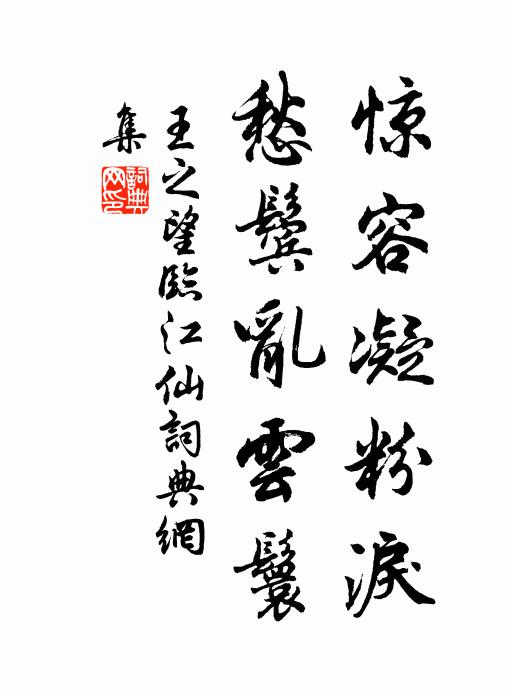 惊容凝粉淚
愁鬓亂雲鬟
王之望臨江仙詞典網
集
詞典网印